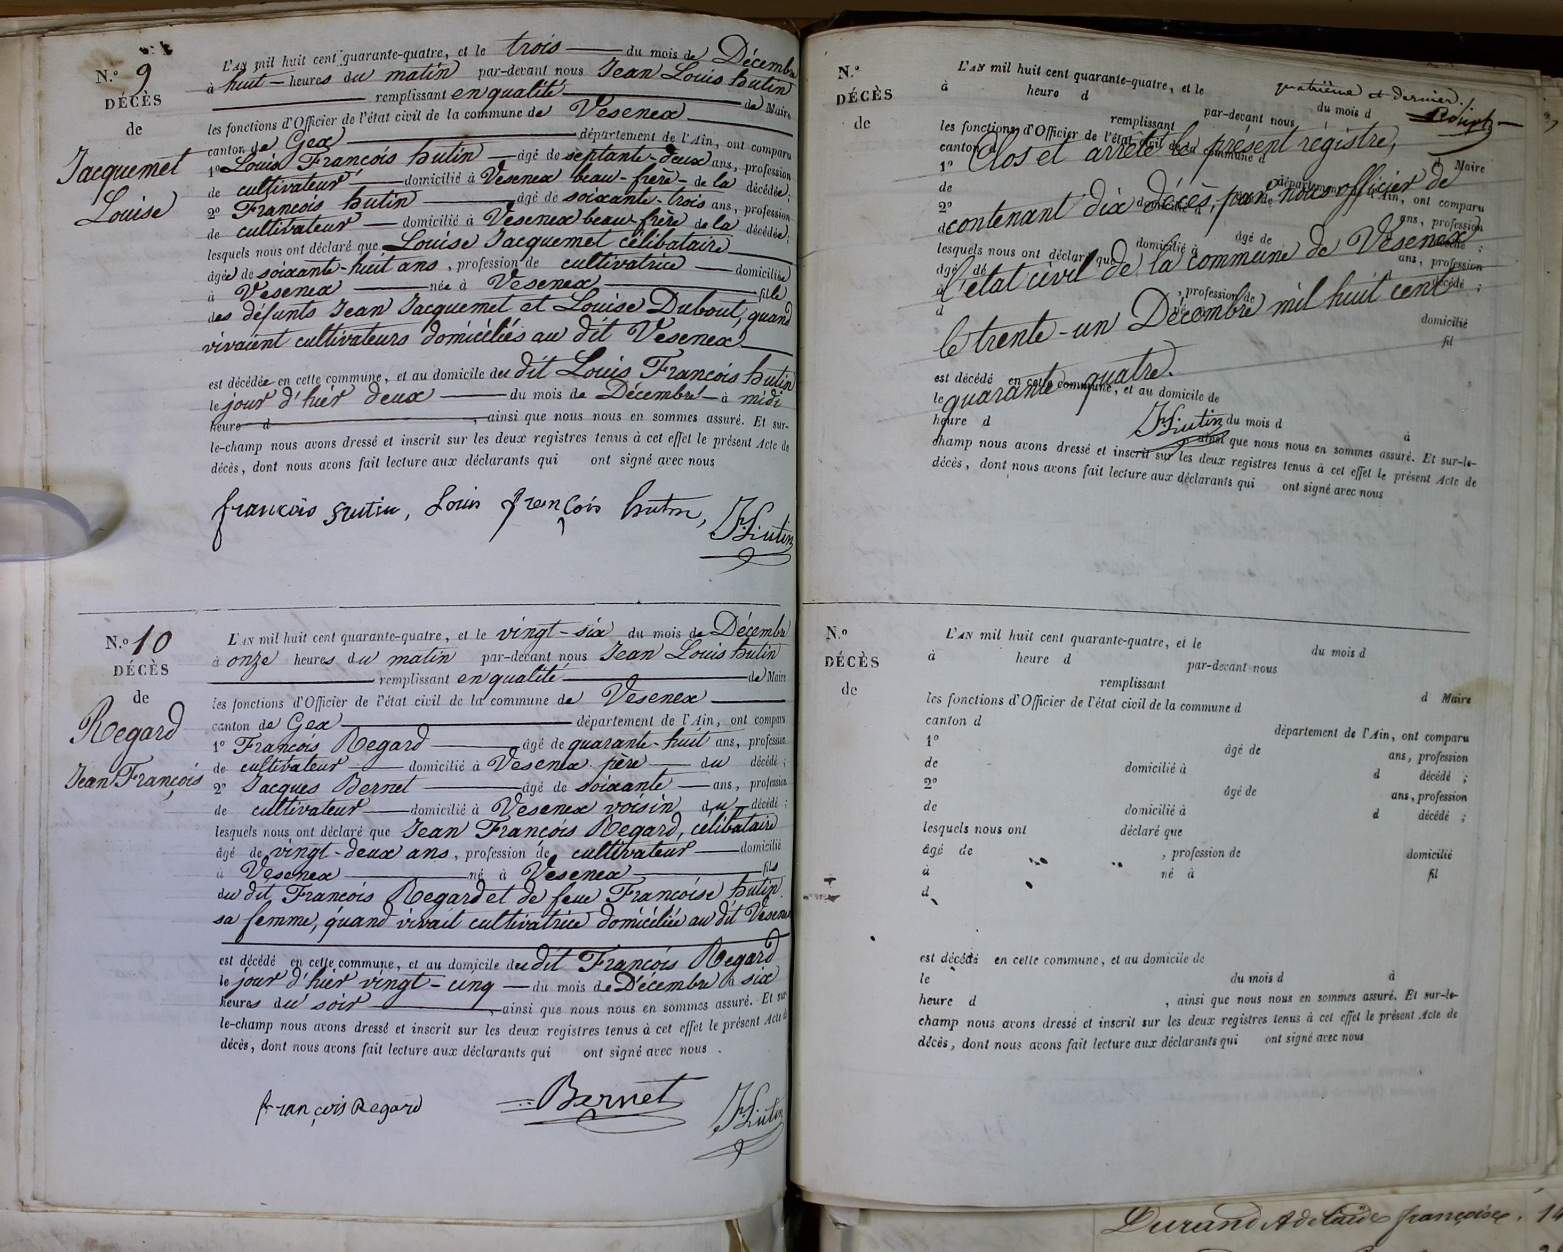 N.° 9
DÉCÈS
de
Jacquemet
Louise
L'AN mil huit cent quarante-quatre, et le trois du mois de Décembre
à huit heures du matin par-devant nous Jean Louis hutin
remplissant en qualité de Maire
les fonctions d'Officier de l'état civil de la commune de Vesenex
canton de Gex département de l'Ain, ont comparu
1° Louis François hutin âgé de septante-deux ans, profession
de cultivateur domicilié à Vesenex beau-frère de la décédée;
2° François hutin âgé de soixante-trois ans, profession
de cultivateur domicilié à Vesenex beau-frère de la décédée;
lesquels nous ont déclaré que Louise Jacquemet célibataire
âgée de soixante-huit ans, profession de cultivatrice domiciliée
à Vesenex née à Vesenex fille
des défunts Jean Jacquemet et Louise Dubout, quand
vivaient cultivateurs domiciliés au dit Vesenex
est décédée en cette commune, et au domicile du dit Louis François hutin
le jour d'hier deux du mois de Décembre à midi
heure d , ainsi que nous nous en sommes assuré. Et sur-
le-champ nous avons dressé et inscrit sur les deux registres tenus à cet effet le présent Acte de
décès, dont nous avons fait lecture aux déclarants qui ont signé avec nous
françois hutin, Louis françois hutin, JLhutin
N.° 10
DÉCÈS
de
Regard
Jean François
L'AN mil huit cent quarante-quatre, et le vingt-six du mois de Décembre
à onze heures du matin par-devant nous Jean Louis hutin
remplissant en qualité de Maire
les fonctions d'Officier de l'état civil de la commune de Vesenex
canton de Gex département de l'Ain, ont comparu
1° François Regard âgé de quarante-huit ans, profession
de cultivateur domicilié à Vesenex père du décédé;
2° Jacques Bernet âgé de soixante ans, profession
de cultivateur domicilié à Vesenex voisin du décédé;
lesquels nous ont déclaré que Jean François Regard, célibataire
âgé de vingt-deux ans, profession de cultivateur domicilié
à Vesenex né à Vesenex fils
du dit François Regard et de feue Françoise hutin
sa femme, quand vivait cultivatrice domiciliée au dit Vesenex
est décédé en cette commune, et au domicile du dit François Regard
le jour d'hier vingt-cinq du mois de Décembre à six
heures du soir , ainsi que nous nous en sommes assuré. Et sur-
le-champ nous avons dressé et inscrit sur les deux registres tenus à cet effet le présent Acte de
décès, dont nous avons fait lecture aux déclarants qui ont signé avec nous.
françois Regard Bernet JLhutin
N.°
DÉCÈS
de
quatrième et dernier.
L'AN mil huit cent quarante-quatre, et le du mois d
à heure d par-devant nous
remplissant d Maire
les fonctions d'Officier de l'état civil de la commune d
canton d département de l'Ain, ont comparu
Clos et arrêté le présent régistre,
1° âgé de ans, profession
de domicilié à d décédé ;
contenant dix décès, par Nous officier de
2° âgé de ans, profession
de domicilié à d décédé ;
l'état civil de la commune de Vesenex
lesquels nous ont déclaré que
âgé de , profession de domicilié
à né à fil
d
le trente-un Décembre mil huit cent
quarante quatre.
est décédé en cette commune, et au domicile de
le du mois d à
heure d , ainsi que nous nous en sommes assuré. Et sur-le-
JLhutin
champ nous avons dressé et inscrit sur les deux registres tenus à cet effet le présent Acte de
décès, dont nous avons fait lecture aux déclarants qui ont signé avec nous
N.°
DÉCÈS
de
L'AN mil huit cent quarante-quatre, et le du mois d
à heure d par-devant nous
remplissant d Maire
les fonctions d'Officier de l'état civil de la commune d
canton d département de l'Ain, ont comparu
1° âgé de ans, profession
de domicilié à d décédé ;
2° âgé de ans, profession
de domicilié à d décédé ;
lesquels nous ont déclaré que
âgé de , profession de domicilié
à né à fil
d
est décédé en cette commune, et au domicile de
le du mois d à
heure d , ainsi que nous nous en sommes assuré. Et sur-le-
champ nous avons dressé et inscrit sur les deux registres tenus à cet effet le présent Acte de
décès, dont nous avons fait lecture aux déclarants qui ont signé avec nous
Durand Adelaide françoise. 14